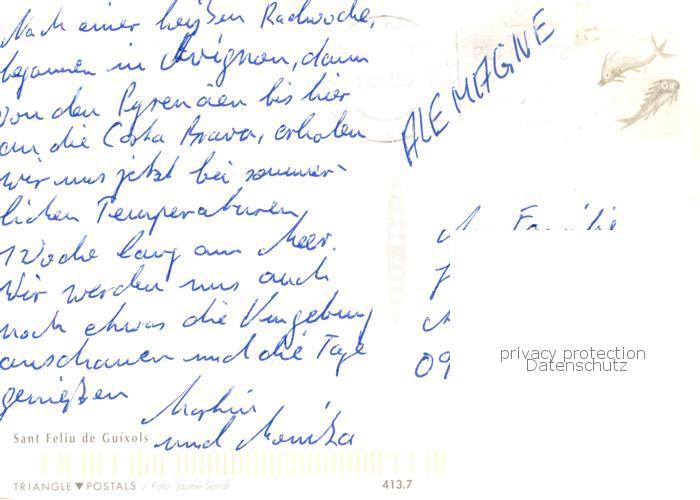 Nach einer heißen Radwoche,
begonnen in Avignon, dann
von den Pyrenäen bis hier
an die Costa Brava, erholen
wir uns jetzt bei sommer-
lichen Temperaturen
1 Woche lang am Meer.
Wir werden uns auch
noch etwas die Umgebung
anschauen und die Tage
genießen
und Monika
ALEMAGNE
An Familie
09
privacy protection
Datenschutz
Sant Feliu de Guíxols
TRIANGLE ▼ POSTALS / Foto: Jaume Serrat
413.7